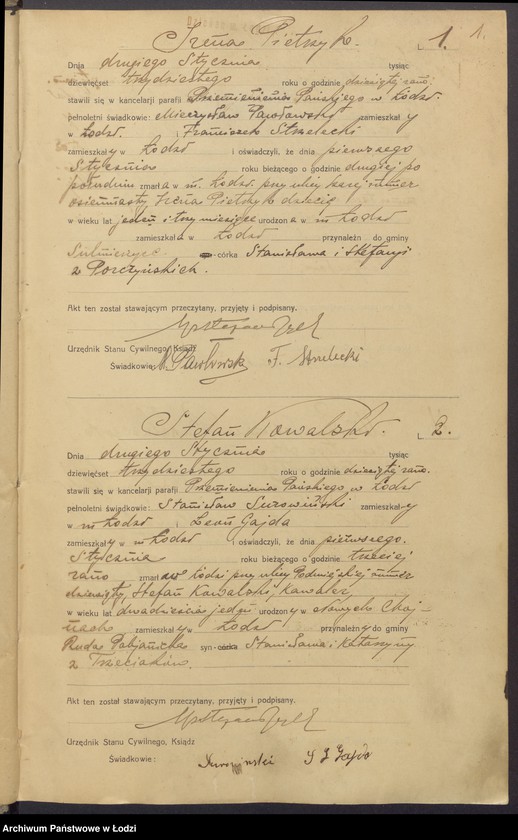 1.
Irena Pietrzyk. L 1.
Dnia drugiego Stycznia tysiąc
dziewięćset trzydziestego roku o godzinie dziesiątej rano
stawili się w kancelarji parafii Przemienienia Pańskiego w Łodzi
pełnoletni świadkowie: Mieczysław Pawłowski zamieszkały
w Łodzi i Franciszek Strzelecki
zamieszkały w Łodzi i oświadczyli, że dnia pierwszego
Stycznia roku bieżącego o godzinie drugiej po
południu zmarła w m. Łodzi przy ulicy numer
osiemnasty Irena Pietrzyk dziecię
w wieku lat jeden i trzy miesiące urodzona w m Łodzi
zamieszkała w Łodzi przynależn do gminy
Sulmierzyce córka Stanisława i Stefanji
z Porczyńskich.
Akt ten został stawającym przeczytany, przyjęty i podpisany.
Urzędnik Stanu Cywilnego, Ksiądz
Świadkowie: M. Pawłowski F. Strzelecki
Stefan Kowalski. L 2.
Dnia drugiego Stycznia tysiąc
dziewięćset trzydziestego roku o godzinie dziesiątej rano.
stawili się w kancelarji parafii Przemienienia Pańskiego w Łodzi
pełnoletni świadkowie: Stanisław Surowiński zamieszkały
w m Łodzi i Leon Gajda
zamieszkały w m Łodzi i oświadczyli, że dnia pierwszego.
Stycznia roku bieżącego o godzinie trzeciej
rano zmarł w Łodzi przy ulicy numer
dziesiąty, Stefan Kowalski, Kawaler,
w wieku lat dwadzieścia jeden urodzony w Choj-
nach zamieszkały w Łodzi przynależny do gminy
Ruda Pabjanicka syn-córka Stanisława i Katarzyny
z Trzeciaków.
Akt ten został stawającym przeczytany, przyjęty i podpisany.
Urzędnik Stanu Cywilnego, Ksiądz
Świadkowie: Surowiński Gajda
Archiwum Państwowe w Łodzi